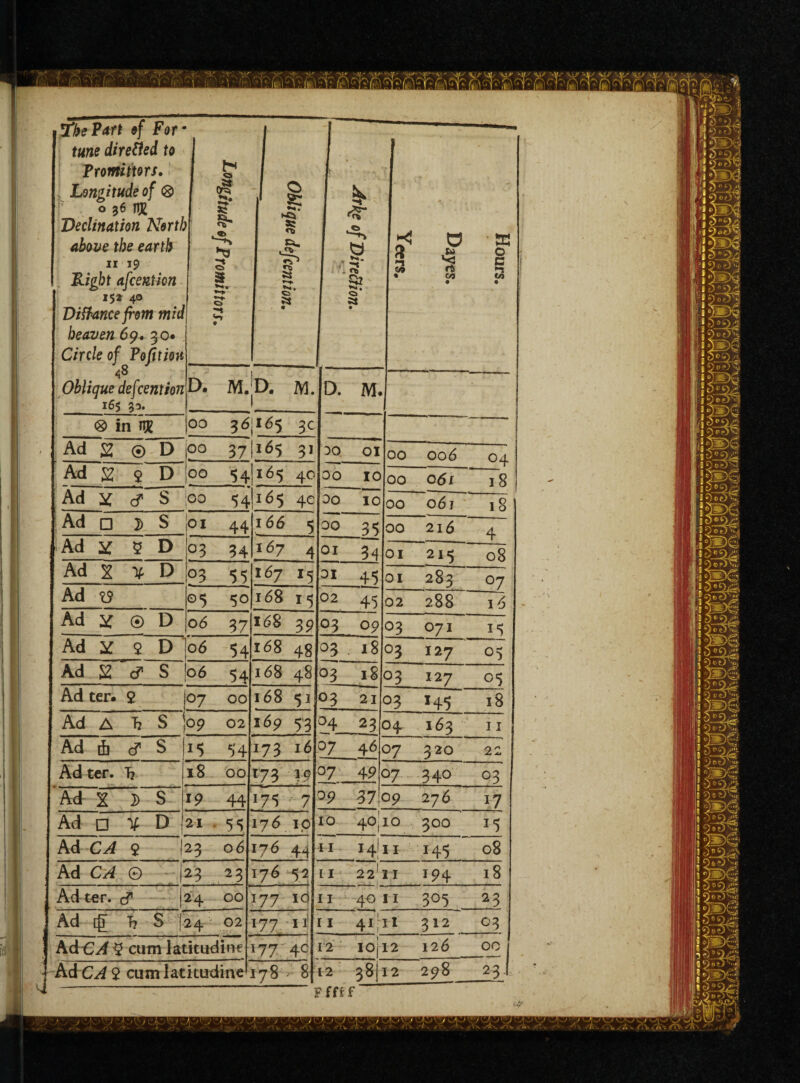 The Part of For-
tune directed to
Promittors.
Longitude of ⊗
0 36 ♍
Declination North
above the earth
11 19
Right ascention
152 40
Distance from mid
heaven 69. 30.
Circle of Position
48
Oblique descention
165 30.
Longitude of Promittors.
Oblique descention.
Arke of Direction.
Yeers.
Dayes.
Hours.
D. M. D. M. D. M.
⊗ in ♍ 00 36 165 30
Ad ☉ D 00 37 165 31 00 01 00 006 04
Ad ♀ D 00 54 165 40 00 10 00 061 18
Ad ♂ S 00 54 165 40 00 10 00 061 18
Ad □ ☽ S 01 44 166 5 00 35 00 216 4
Ad ☿ D 03 34 167 4 01 34 01 215 08
Ad ♃ D 03 55 167 15 01 45 01 283 07
Ad 05 50 168 15 02 45 02 288 16
Ad ☉ D 06 37 168 39 03 09 03 071 15
Ad ♀ D 06 54 168 48 03 18 03 127 05
Ad ♂ S 06 54 168 48 03 18 03 127 05
Ad ter. ♀ 07 00 168 51 03 21 03 145 18
Ad △ ♄ S 09 02 169 53 04 23 04 163 11
Ad ♂ S 15 54 173 16 07 46 07 320 22
Ad ter. ♄ 18 00 173 19 07 49 07 340 03
Ad ☽ S 19 44 175 7 09 37 09 276 17
Ad □ ♃ D 21 55 176 10 10 40 10 300 15
Ad CA ♀ 23 06 176 44 11 14 11 145 08
Ad CA ☉ 23 23 176 52 11 22 11 194 18
Ad ter. ♂ 24 00 177 10 11 40 11 305 23
Ad ♄ S 24 02 177 11 11 41 11 312 03
Ad CA ☿ cum latitudine 177 40 12 10 12 126 00
Ad CA ♀ cum latitudine 178 8 12 38 12 298 23
F ffff